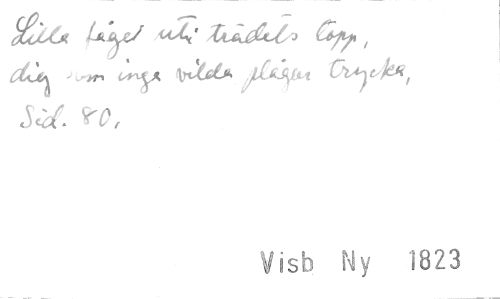 Lilla fågel uti trädets topp,
dig som inga vilda plågar trycka,
Sid. 80.
Visb Ny 1823